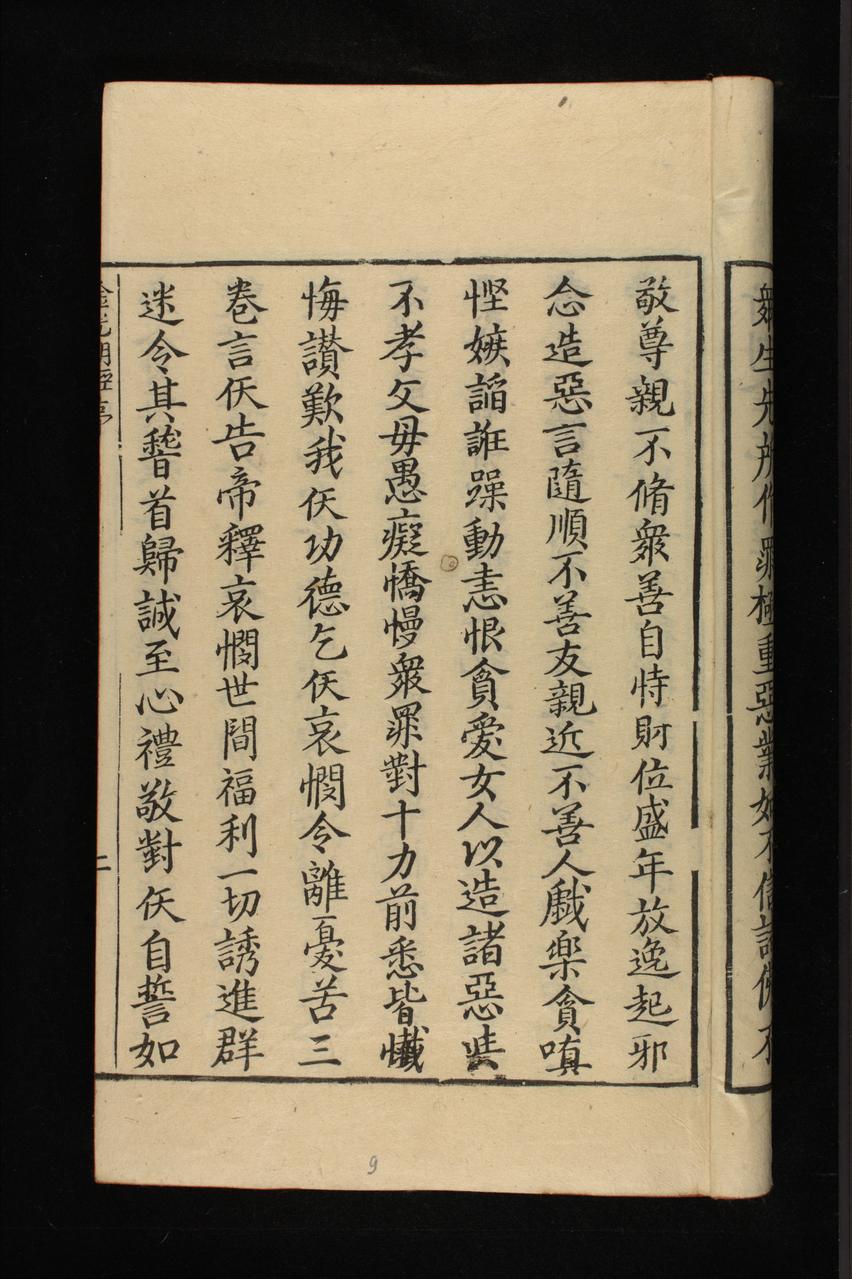 衆生先所作罪極重惡業如不信諸佛不
敬尊親不脩衆善自恃財位盛年放逸起邪
念造惡言隨順不善友親近不善人戱樂貪嗔
悭嫉謟誑躁動恚恨貪愛女人以造諸惡
不孝父毋愚癡憍慢衆罪對十力前悉皆懺
悔讃歎我仸功德乞仸哀憫令離憂苦三
卷言仸告帝釋哀憫世間福利一切誘進群
迷令其稽首歸誠至心禮敬對仸自誓如
金光明經序
二
9